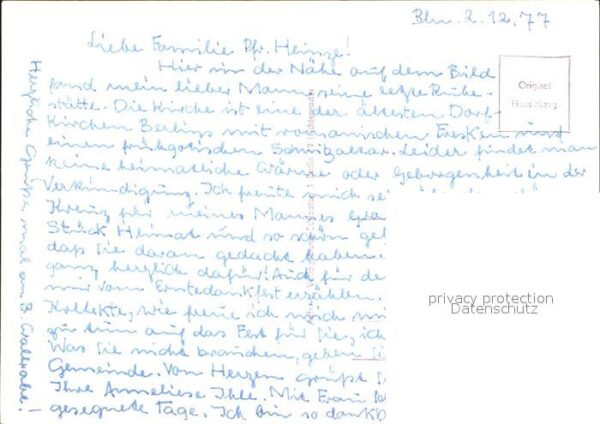 Bln. 2.12.77
Liebe Familie Pfr. Heinze!
Hier in der Nähe auf dem Bild
fand mein lieber Mann seine letzte Ruhe-
stätte. Die Kirche ist eine der ältesten Dorf-
kirchen Berlins mit romanischen Fresken und
einem frühgotischen Schnitzaltar. Leider findet man
keine heimatliche Wärme oder Geborgenheit in der
Verkündigung. Ich freute mich
Kreuz für meines Mannes
Stück Heimat und so schön
daß Sie daran gedacht haben.
ganz herzlich dafür! Auch für
mir vom Erntedankfest erzählen.
Kollekte, wie freue ich mich
zu tun auf das Fest für Sie, ich
Was Sie nicht brauchen, geben
Gemeinde. Von Herzen grüßt
Ihre Anneliese Ihle. Mit Frau
gesegnete Tage. Ich bin so
Herzliche Grüße, mal an B.
Original
Handabzug
privacy protection
Datenschutz